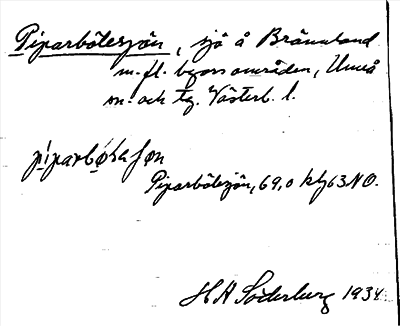 Piparbölesjön, sjö å Brännland
m. fl. byars områden, Umeå
sn. och tg. Västerb. l.
píparbø̀ḷa ʃøn
Piparbölesjön, 69,0 kbl 63 NO.
H A Söderberg 1934